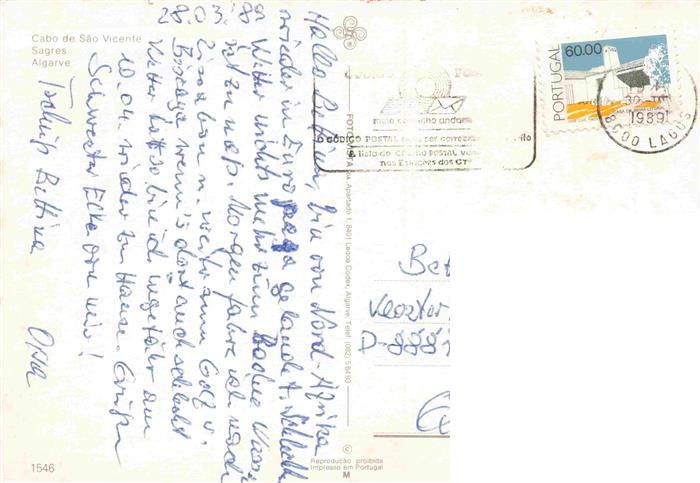 Cabo de São Vicente
Sagres
Algarve
28.03.89
Hallo Bettina, bin von Nord-Afrika
wieder in Europa gelandet. Schlech
Wetter nicht mehr zum Baden
ist zu naß. Morgen fahre ich nach
Lissabon u. weiter zum
wenn's dort auch schlecht
Wetter hat so bin ich ungefähr am
10.04. wieder zu Hause. Grüße
Schwester von mir!
Tschüß Bettina
PORTUGAL
60.00
1989
8600 LAGOS
CÓDIGO POSTAL
meio caminho andado
O CÓDIGO POSTAL
a lista do CÓDIGO POSTAL
nas Estações dos CTT
Apartado 1, 8401 Lagoa Codex, Algarve, Telef. (082) 5 84 93
Bet
Kloster
D-8891
©
Reprodução proibida
Impresso em Portugal
M
1546